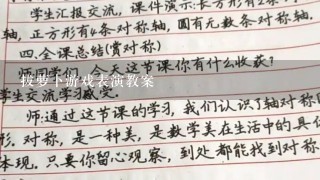 学生汇报交流，课件演示：长方形有2条
轴，正方形有4条对称轴，圆有无数条对称轴.
四.全课总结(赏对称)
师：同学们，今天这节课你有什么收获？
拔萝卜游戏表演教案
学生交流学习感受.
师：通过这节课的学习，我们认识了轴对称
形.对称，是一种美，是数学美在生活中的具
体现.只要你留心观察，到处都能找到对称